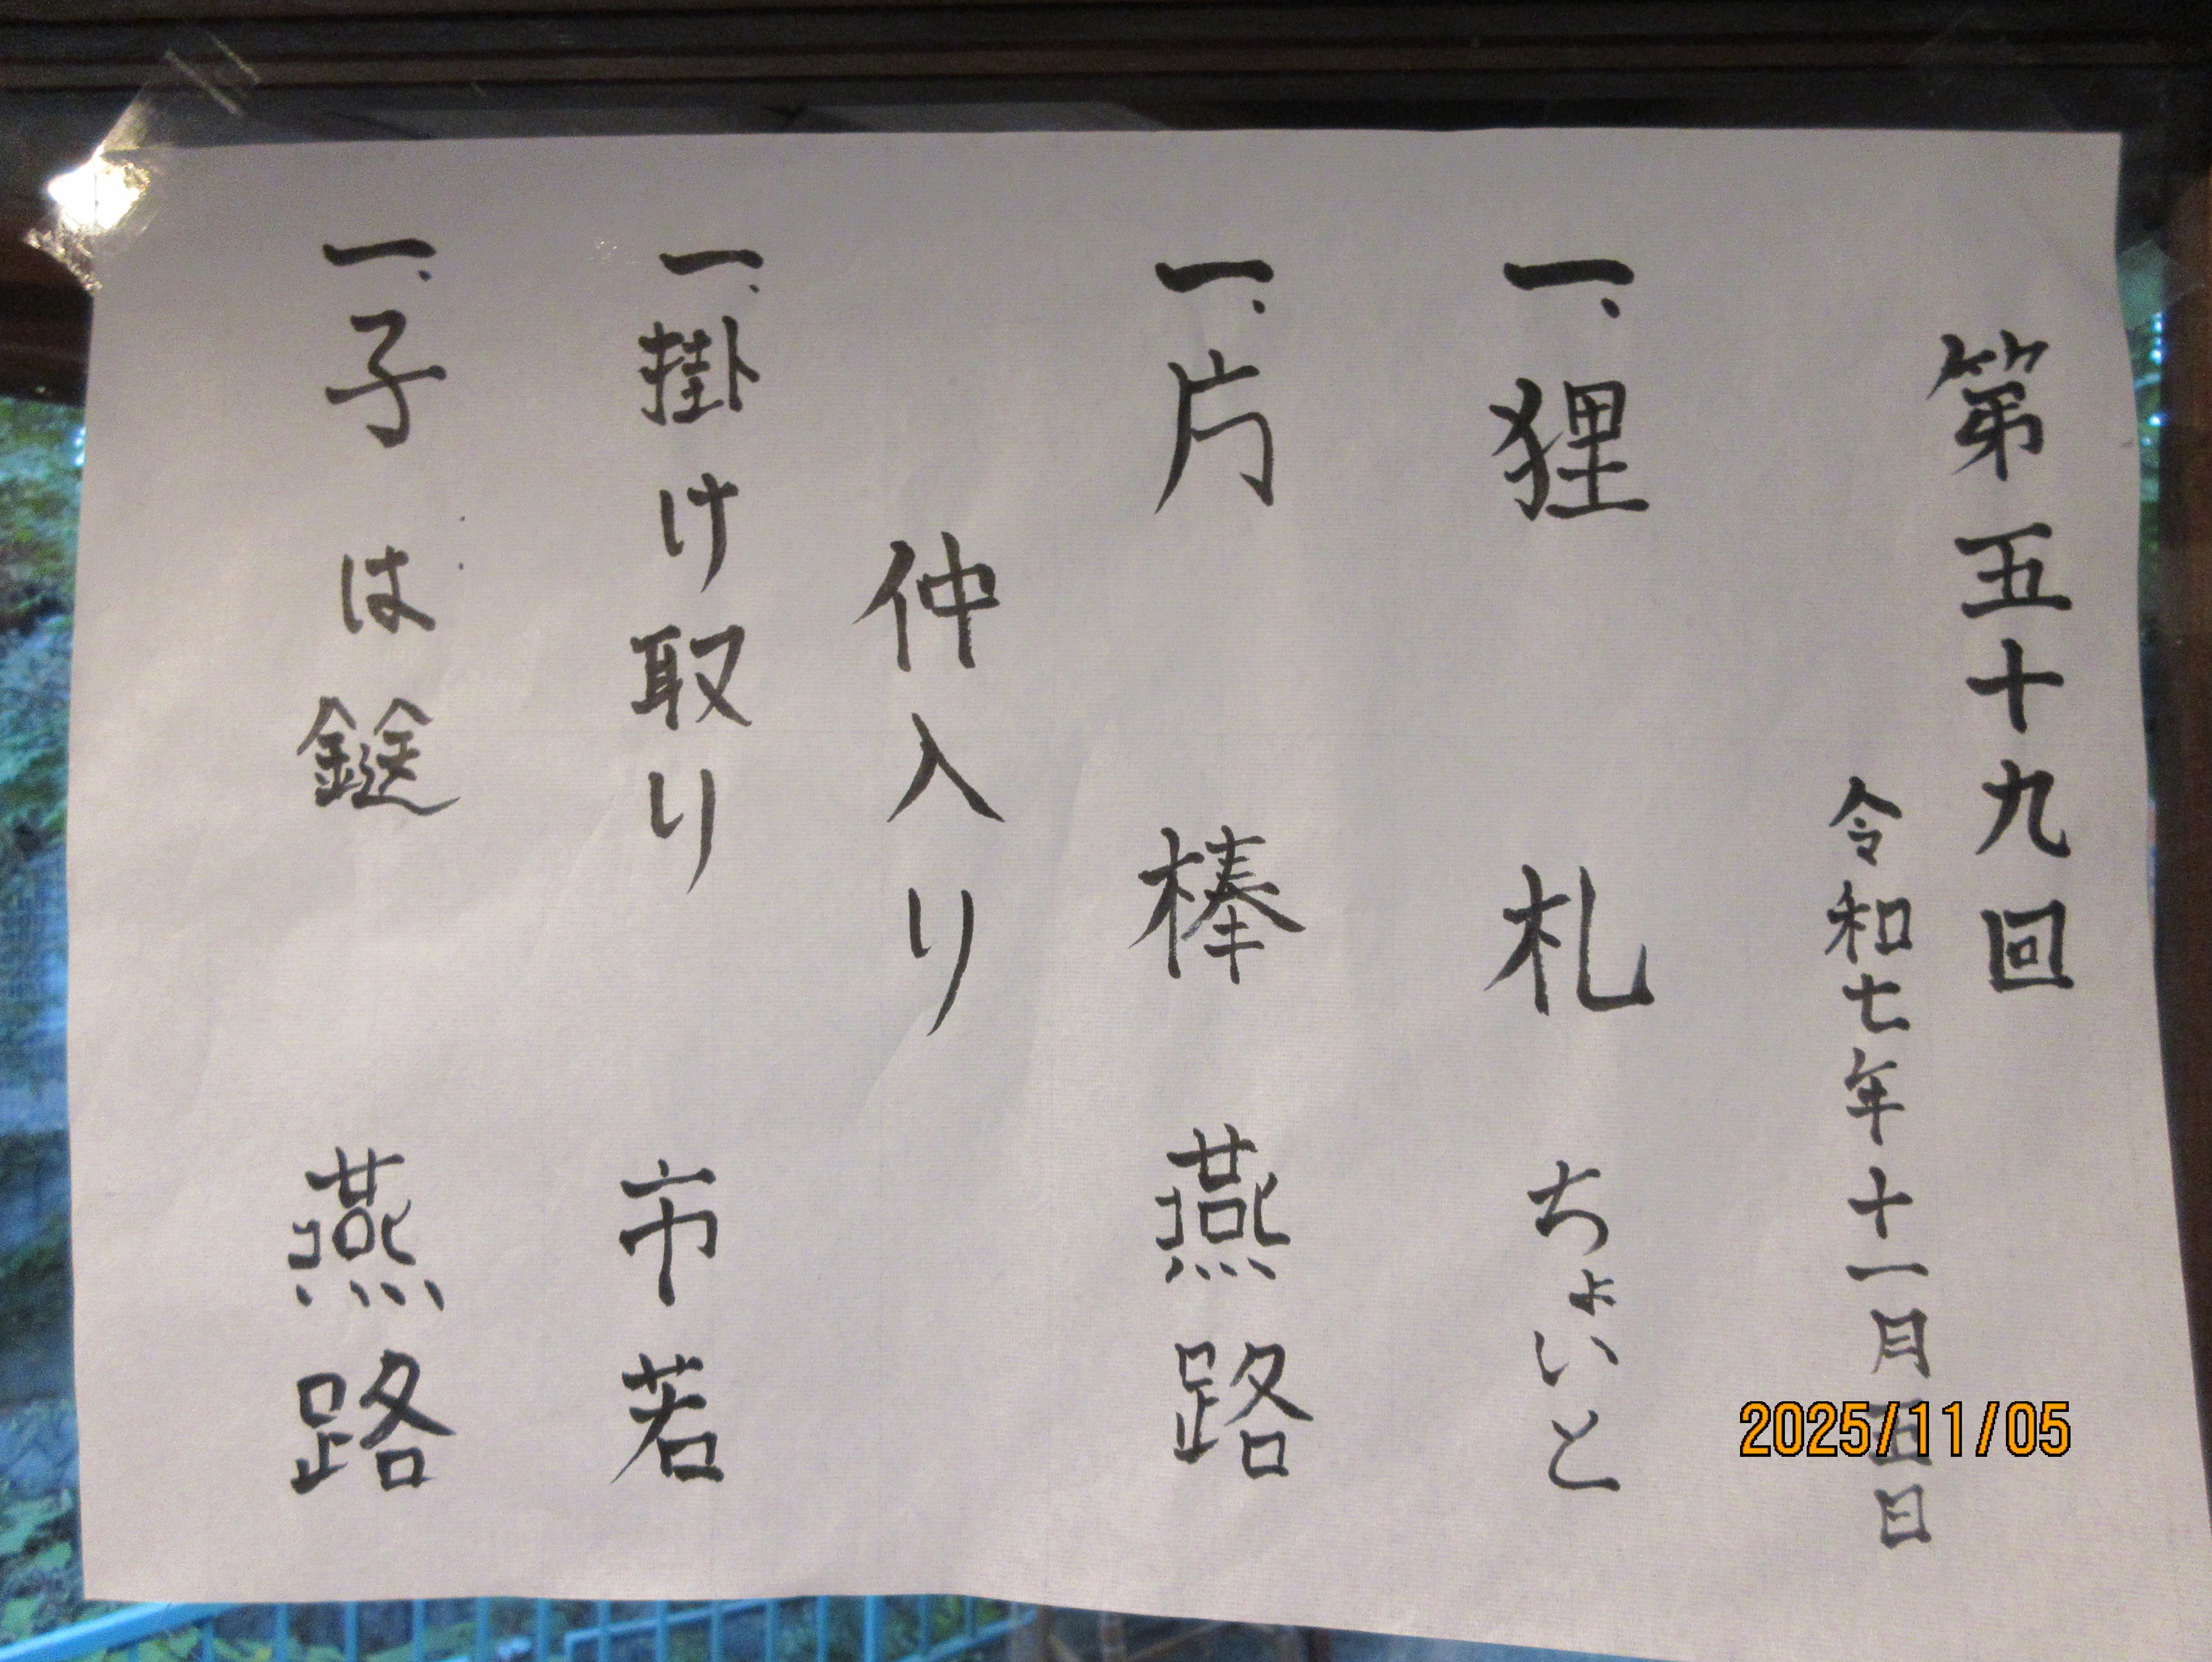 第五十九回
令和七年十一月五日
一、狸 札 ちょいと
一、片 棒 燕路
仲入り
一、掛け取り 市若
一、子は鎹 燕路
2025/11/05